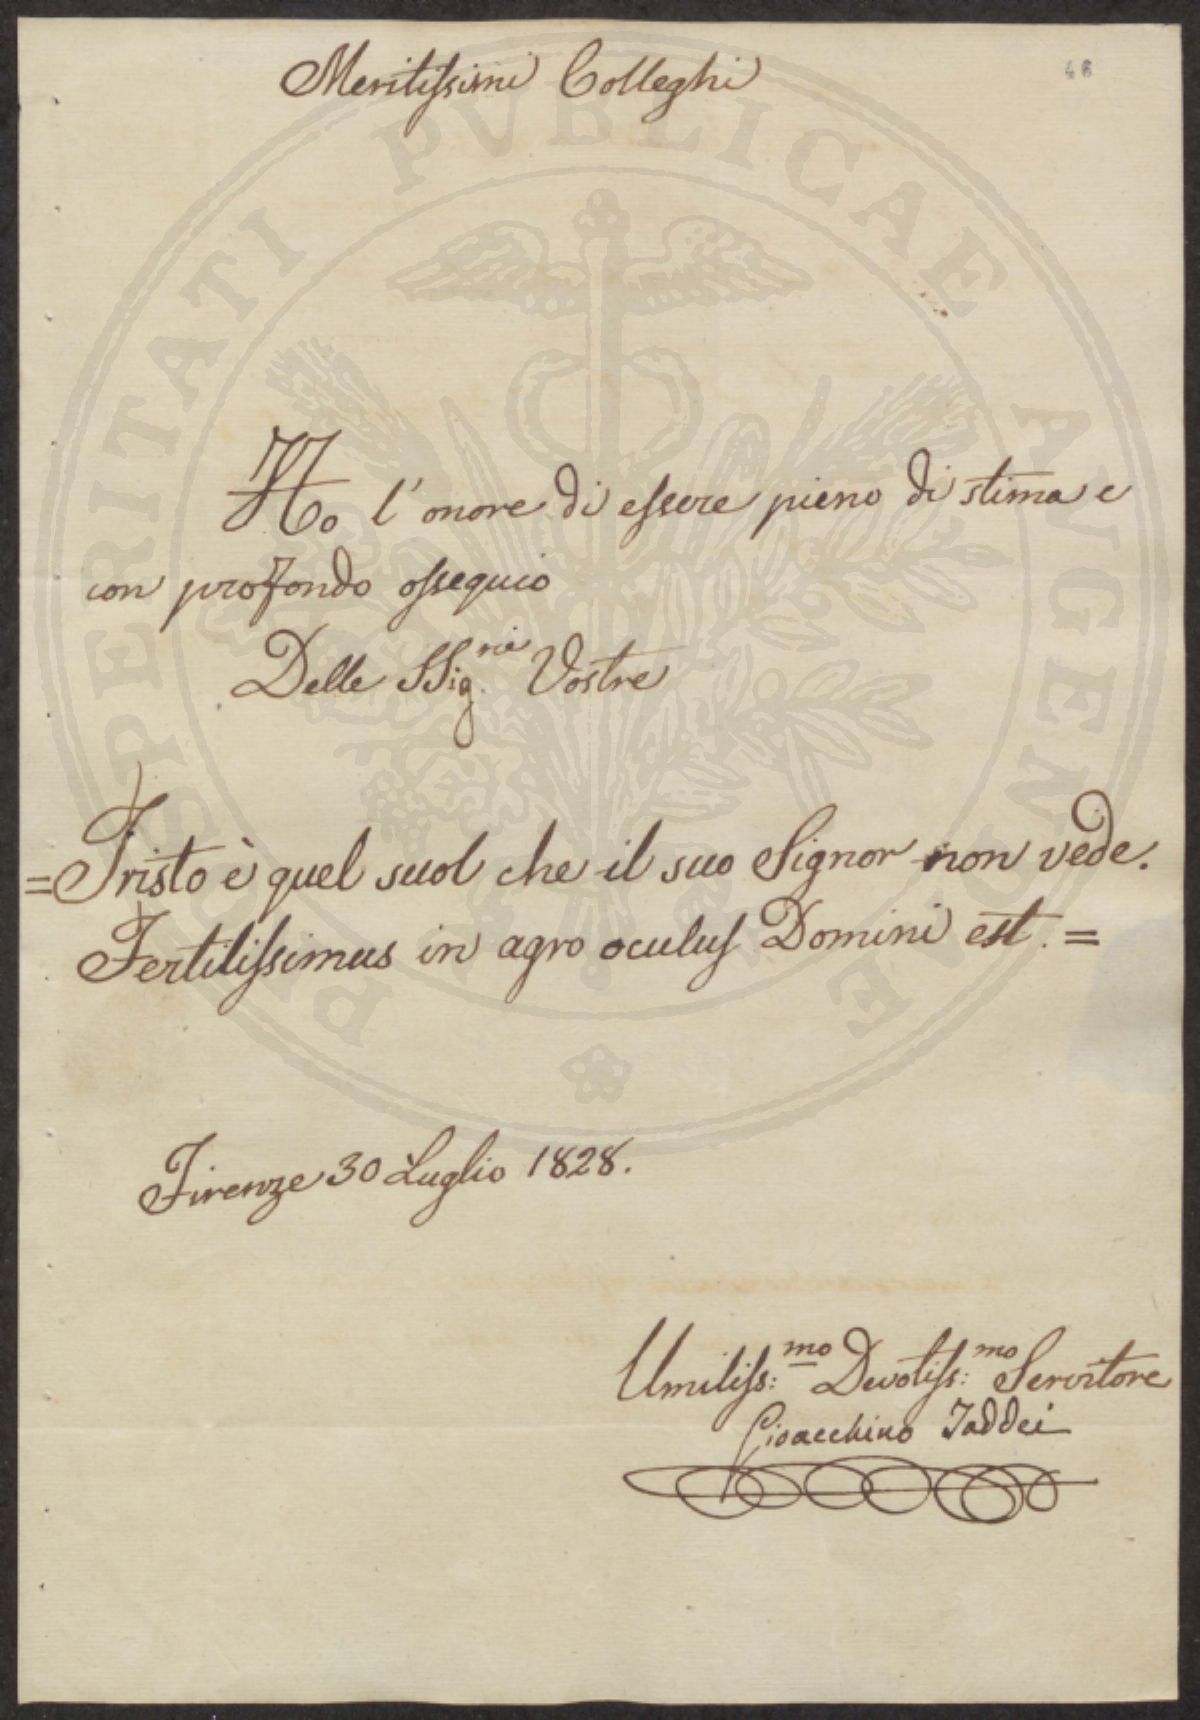 Meritissimi Colleghi
46
Ho l'onore di essere pieno di stima e
con profondo ossequio
Delle SSig.rie Vostre
=Tristo è quel suol che il suo Signor non vede.
Fertilissimus in agro oculus Domini est.=
Firenze 30 Luglio 1828.
Umiliss:mo Devotiss:mo Servitore
Gioacchino Taddei
PROSPERITATI PVBLICAE AVGENDAE